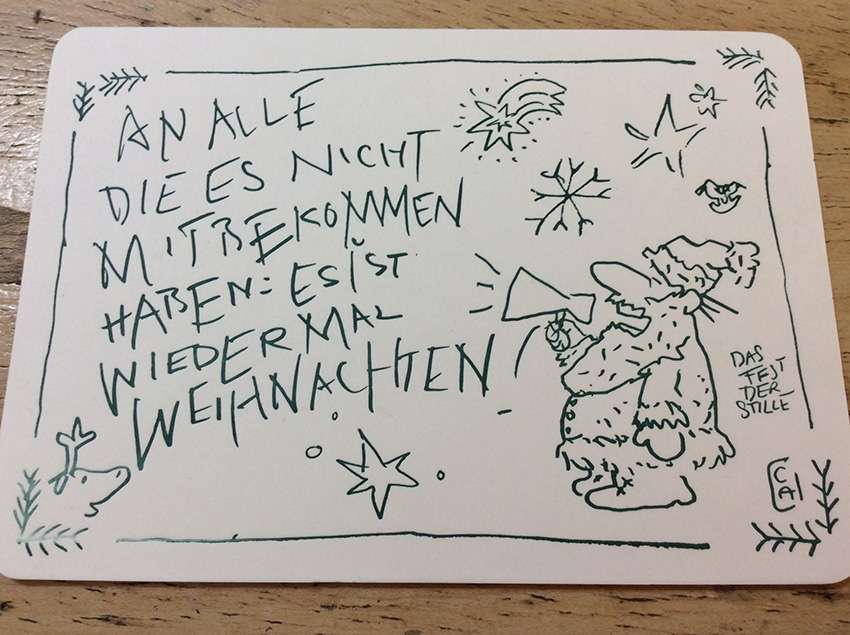 AN ALLE
DIE ES NICHT
MITBEKOMMEN
HABEN: ES IST
WIEDER MAL
WEIHNACHTEN!
DAS
FEST
DER
STILLE
CA